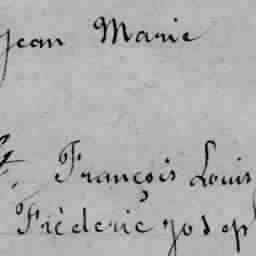 Jean Marie
François Louis
Fréderic Joseph